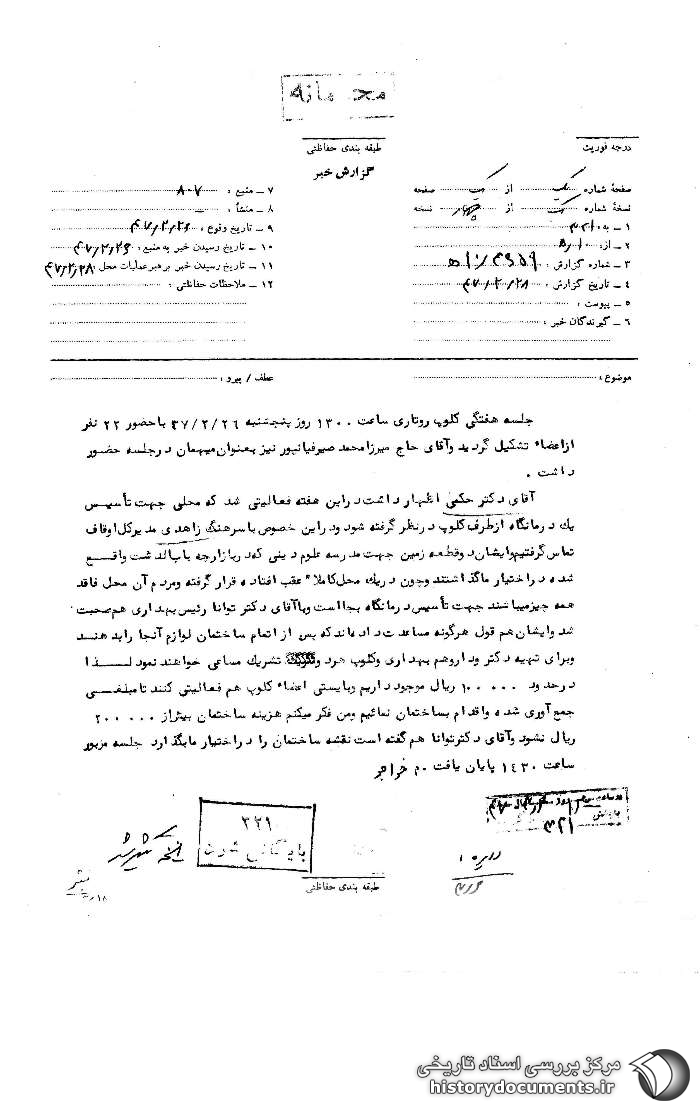 محرمانه
درجه فوریت
طبقه بندی حفاظتی
گزارش خبر
صفحهٔ شماره یک از یک صفحه
نسخهٔ شماره یک از چهار نسخه
۱ ـ به: ۳۲۱
۲ ـ از: ۱۰ﻫ
۳ ـ شماره گزارش:
۴ ـ تاریخ گزارش: ۴۷/۲/۲۸
۵ ـ پیوست:
۶ ـ گیرندگان خبر:
۷ ـ منبع: ۸۰۷
۸ ـ منشأ:
۹ ـ تاریخ وقوع: ۴۷/۲/۲۶
۱۰ ـ تاریخ رسیدن خبر به منبع: ۴۷/۲/۲۶
۱۱ ـ تاریخ رسیدن خبر برهبر عملیات محل: ۴۷/۲/۲۸
۱۲ ـ ملاحظات حفاظتی:
موضوع:
عطف / پیرو:
جلسه هفتگی کلوپ روتاری ساعت ۱۳۰۰ روز پنجشنبه ۴۷/۲/۲۶ با حضور ۲۲ نفر
از اعضاء تشکیل گردید و آقای حاج میرزا محمد صیرفیانپور نیز بعنوان میهمان در جلسه حضور
داشت .
آقای دکتر حکمی اظهار داشت در این هفته فعالیتی شد که محلی جهت تأسیس
یک درمانگاه از طرف کلوپ در نظر گرفته شود و در این خصوص با سرهنگ زاهدی مدیرکل اوقاف
تماس گرفتیم و ایشان دو قطعه زمین جهت مدرسه علوم دینی که در بازارچه باب الدشت واقع
شده در اختیار ما گذاشتند و چون در یک محل کاملا" عقب افتاده قرار گرفته و مردم آن محل فاقد
همه چیز میباشند جهت تأسیس درمانگاه بجا است و با آقای دکتر توانا رئیس بهداری هم صحبت
شد و ایشان هم قول هرگونه مساعدت داده اند که پس از اتمام ساختمان لوازم آنجا را بدهند
و برای تهیه دکتر و دارو هم بهداری و کلوپ هر دو تشریک مساعی خواهند نمود لذا
در حدود ۱۰۰۰۰۰ ریال موجود داریم و بایستی اعضاء کلوپ هم فعالیتی کنند تا مبلغی
جمع آوری شده و اقدام بساختمان نمائیم و من فکر میکنم هزینه ساختمان بیش از ۲۰۰۰۰۰
ریال نشود و آقای دکتر توانا هم گفته است نقشه ساختمان را در اختیار ما بگذارد جلسه مزبور
ساعت ۱۴۳۰ پایان یافت م خواجو
۳۲۱
۳۲۱
بایگانی شود
طبقه بندی حفاظتی
مرکز بررسی اسناد تاریخی
historydocuments.ir